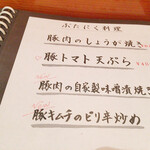 ぶたにく料理
豚肉のしょうが焼き
豚トマト天ぷら
豚肉の自家製味噌漬焼き
豚キムチのピリ辛炒め